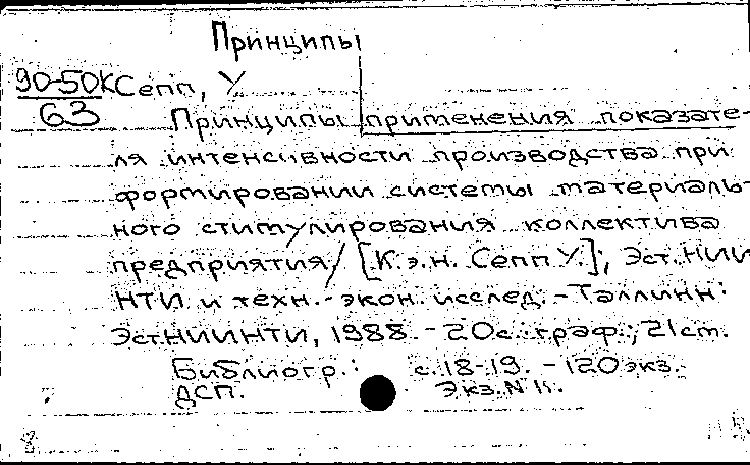 Принципы
90-50К Сепп, У
63
Принципы применения показате-
ля интенсивности производства при
формировании системы материаль-
ного стимулирования коллектива
предприятия / [К.э.н. Сепп У.]; Эст.НИИ
НТИ и техн.-экон. исслед. - Таллинн:
Эст.НИИНТИ, 1988. - 20с.: граф.; 21 см.
Библиогр.: с.18-19. - 120 экз.
ДСП. Экз.N 11.